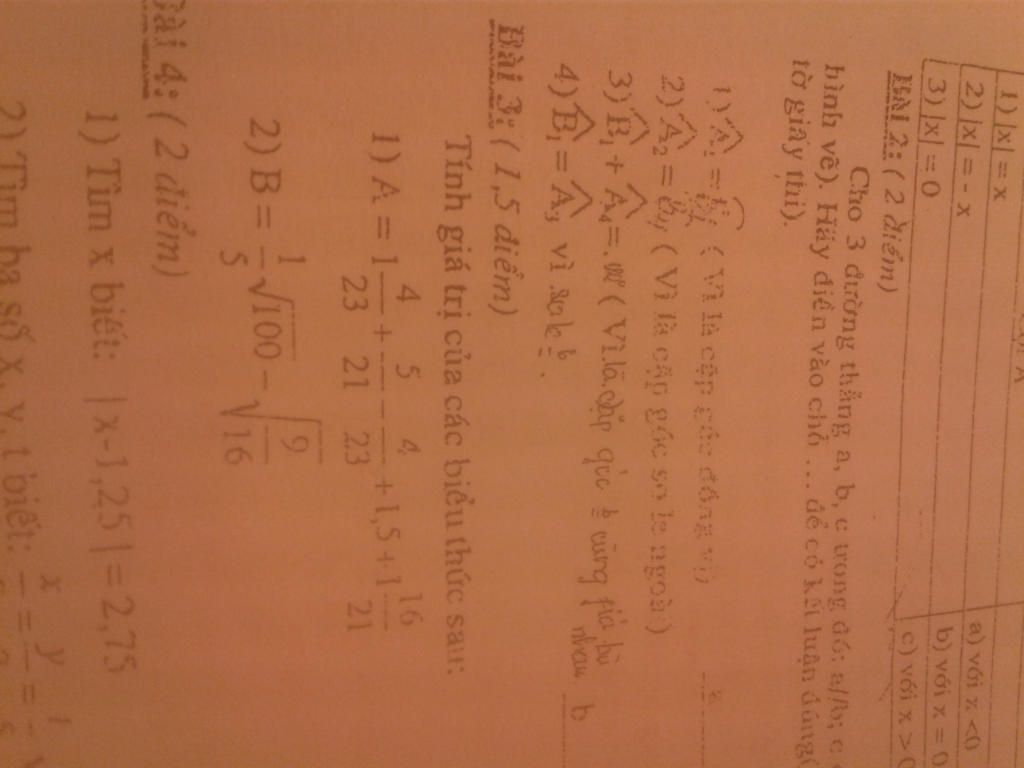 1) |x| = x
a) với x <0
2) |x| = - x
b) với x = 0
3) |x| = 0
c) với x > 0
Bài 2: ( 2 điểm)
Cho 3 đường thẳng a, b, c trong đó: a//b; c
hình vẽ). Hãy điền vào chỗ ... để có kết luận đúng(
tờ giấy thi).
1) Â₁ = ( Vì là cặp góc đồng vị)
2) Â₂ = ( Vì là cặp góc so le ngoài)
3) B̂₁ + Â₄ = ( Vì là cặp góc cùng phía bù nhau
4) B̂₁ = Â₃ vì so le
b
Bài 3: ( 1,5 điểm)
Tính giá trị của các biểu thức sau:
1) A = 1 4/23 + 5/21 - 4/23 + 1,5 + 1 16/21
2) B = 1/5 √100 - √(9/16)
Bài 4: ( 2 điểm)
1) Tìm x biết: |x-1,25| = 2,75
2) Tìm ba số x, y, t biết: x = y =